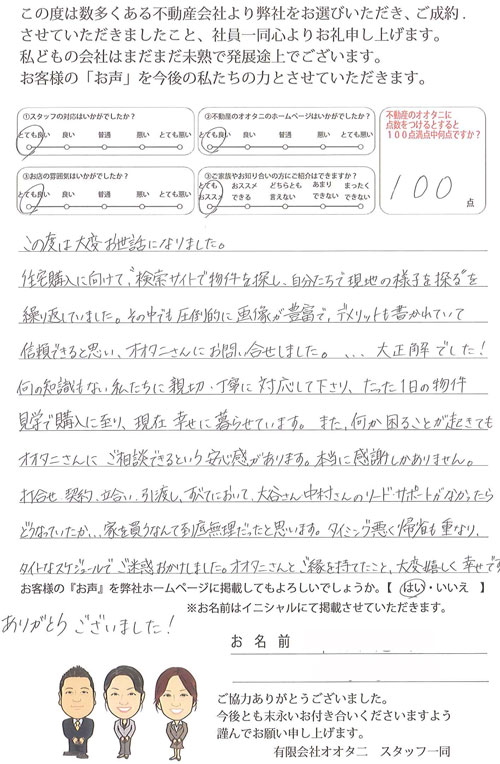 この度は数多くある不動産会社より弊社をお選びいただき、ご成約.
させていただきましたこと、社員一同心よりお礼申し上げます。
私どもの会社はまだまだ未熟で発展途上でございます。
お客様の「お声」を今後の私たちの力とさせていただきます。
①スタッフの対応はいかがでしたか？
とても良い 良い 普通 悪い とても悪い
②不動産のオオタニのホームページはいかがでしたか？
とても良い 良い 普通 悪い とても悪い
③お店の雰囲気はいかがでしたか？
とても良い 良い 普通 悪い とても悪い
③ご家族やお知り合いの方にご紹介はできますか？
とても おススメ どちらとも あまり まったく
おススメ できる 言えない できない できない
不動産のオオタニに
点数をつけるとすると
１００点満点中何点ですか？
100
点
この度は大変お世話になりました。
住宅購入に向けて、"検索サイトで物件を探し、自分たちで現地の様子を探る"を
繰り返していました。その中でも圧倒的に画像が豊富で、デメリットも書かれていて
信頼できると思い、オオタニさんにお問い合せしました。、、、大正解でした！
何の知識もない私たちに親切、丁寧に対応して下さり、たった1日の物件
見学で購入に至り、現在幸せに暮らせています。また、何か困ることが起きても
オオタニさんにご相談できるという安心感があります。本当に感謝しかありません。
打合せ、契約、立合い、引渡し、すべてにおいて、大谷さん中村さんのリードサポートがなかったら
どうなっていたか、、、家を買うなんて到底無理だったと思います。タイミング悪く帰省も重なり、
タイトなスケジュールでご迷惑おかけしました。オオタニさんとご縁を持てたこと、大変嬉しく幸せです
お客様の『お声』を弊社ホームページに掲載してもよろしいでしょうか。【 はい・いいえ 】
※お名前はイニシャルにて掲載させていただきます。
ありがとうございました！
お 名 前
ご協力ありがとうございました。
今後とも末永いお付き合いくださいますよう
謹んでお願い申し上げます。
有限会社オオタニ スタッフ一同